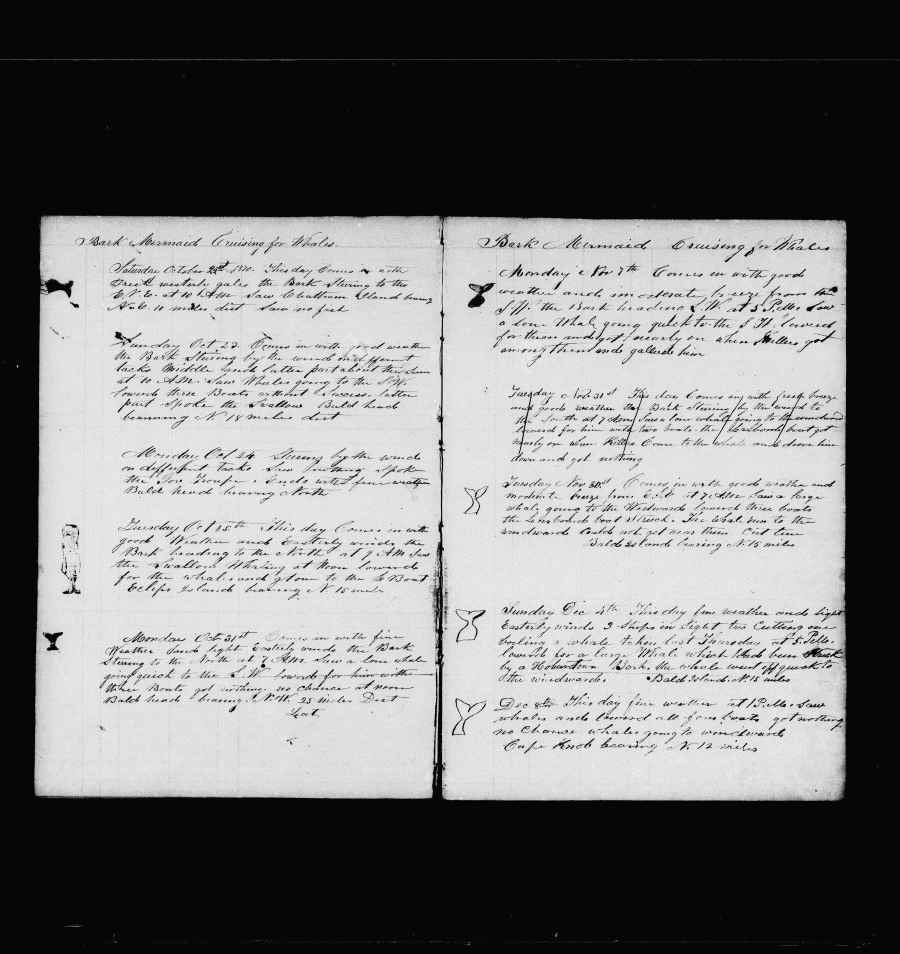 Bark Mermaid Cruising for Whales.
Saturday October This day Comes in with
westerly gales the Bark Stering to the
E.N.E. at 10 AM Saw Chattram Island bearing
10 miles dist Saw no fish
Sunday Oct 23 Comes in with good weather
the Bark Stering by the wind on different
tacks Middle and latter part about the Same
at 10 AM. Saw Whales going to the S.W.
lowerd three Boats without Success. latter
part Spoke the Swallow Bald head
bearning N 18 miles dist
Monday Oct 24 Stering by the wind
on different tacks Saw nothing Spok
the Ends with fine weather
Bald head bearing North
Tuesday Oct 25th This day Comes in with
good Weather and Easterly winds the
Bark heading to the North at 9 AM Saw
the Swallow Whaling at Noon lowerd
for the whales and got one to the Boat
Eclips Island bearing N. 15 miles
Monday Oct 31st Comes in with fine
Weather and light Easterly winds the Bark
Stering to the North at 7 AM. Saw a lone whale
going quick to the S.W lowerd for him with
three Boats got nothing no chance at noon
Bald head bearing N.W. 25 miles Dist
Lat.
Bark Mermaid Cruising for Whales
Monday Nov 7th Comes in with good
weather and moderate breeze from the
the Bark heading S.W. at 5 P.M. Saw
a lone Whale going quick to the S.W. lowerd
for them and got nearly on when Killers got
among them and gallied him
Tuesday Nov 31st This day Comes in with fresh breeze
and good weather the Bark Stering by the wind to
the at 7 AM Saw a lone whale going to the windward
lowerd for him with two boats the Larboard boat got
nearly on when Killers Come to the whale and drove him
down and got nothing
Tuesday Nov Comes in with good weather and
moderate breeze from at 7 AM Saw a large
whale going to the Westward lowerd three boats
the Larboard boat Struck. The Whale run to the
windward Could not get near them Cut line
Bald Island bearing N. 15 miles
Sunday Dec 4th This day fine weather and light
Easterly winds 3 Ships in Sight two Cutting one
boiling a whale taken last Thursday at 5 P.M.
lowerd for a large Whale which had been Struck
by a Hobertown Bark, the whale went off quick to
the windward. Bald Island. N. 15 miles
Dec This day fine weather at 1 P.M. Saw
whales and lowerd all four boats got nothing
no Chance whales going to windward
Cape Knob bearing N. 12 miles